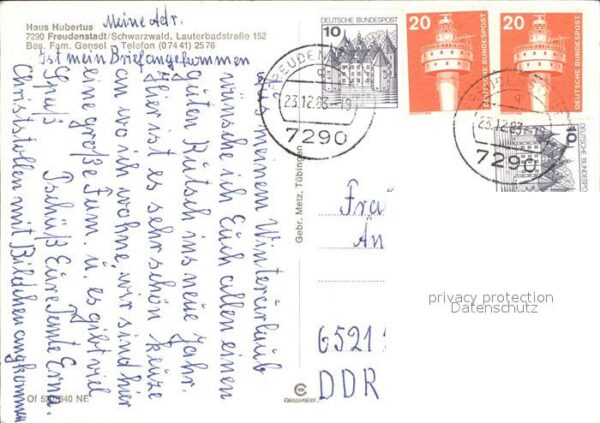 Haus Hubertus
7290 Freudenstadt/Schwarzwald, Lauterbadstraße 152
Bes. Fam. Gensel - Telefon (07441) 2576
Meine Adr.
Ist mein Brief angekommen
meinem Winterurlaub
wünsche ich Euch allen einen
guten Rutsch ins neue Jahr.
Hier ist es sehr schön
an wo ich wohne, wir sind hier
eine große Fam. u. es gibt viel
Spaß Tschüß Eure Tante Erna.
Christstollen mit Bildchen angekommen
Of 520 640 NE
Gebr. Metz, Tübingen
10
DEUTSCHE BUNDESPOST
20
DEUTSCHE BUNDESPOST
20
DEUTSCHE BUNDESPOST
10
DEUTSCHE BUNDESPOST
23.12.83-19
7290
23.12.83-19
7290
Fra
An
6521
DDR
privacy protection
Datenschutz